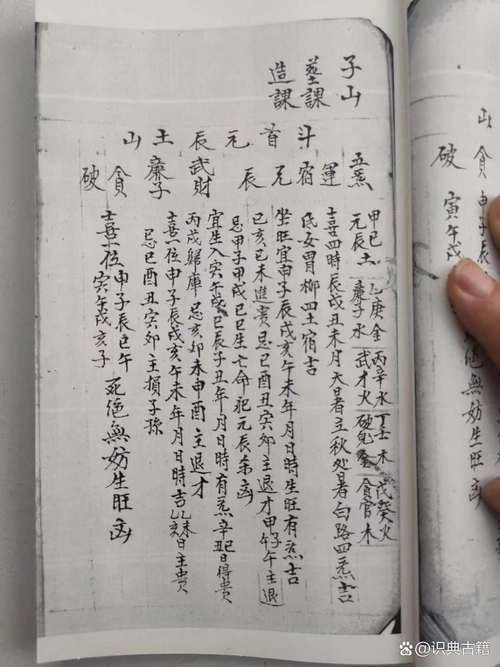 子山
葬課
造課
斗首元辰土山
五炁
甲己 乙庚金 丙辛水 丁壬木 戊癸火
元辰土 廉子水 武才火 破鬼金 貪官木
運
喜四時辰戌丑未月大暑立秋处暑白路四炁吉
宿
氐女胃柳四土宿吉
元辰
坐旺宜申子辰戌亥午未年月日時生旺有炁吉
己亥己未進貴忌巳酉丑寅卯主退才甲子午主退
忌甲子甲戌己巳生亡命犯元辰条凶
武財
宜生入寅午戌巳辰子丑年月日時有炁辛丑日得貴
丙戌歸庫忌亥卯未申酉主退才
廉子
喜位申子辰戌亥午未年月日時吉乙未乙亥日主貴
忌巳酉丑寅卯主損子孫
貪
破
喜位申子辰巳午
寅午戌亥子
死絕無妨生旺凶
山
貪
破
申子辰
寅午戌
識典古籍